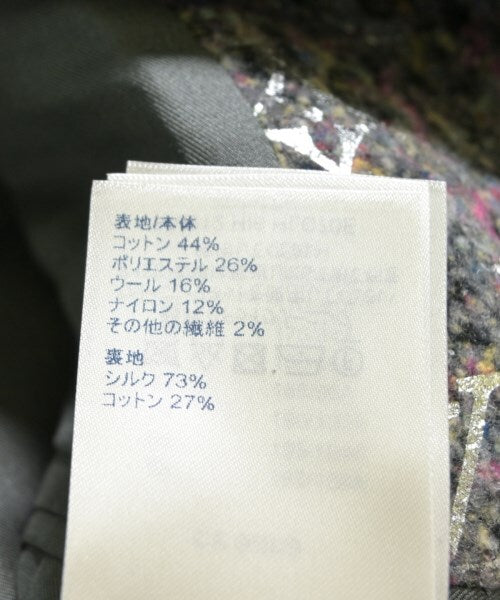 表地/本体
コットン 44%
ポリエステル 26%
ウール 16%
ナイロン 12%
その他の繊維 2%
裏地
シルク 73%
コットン 27%